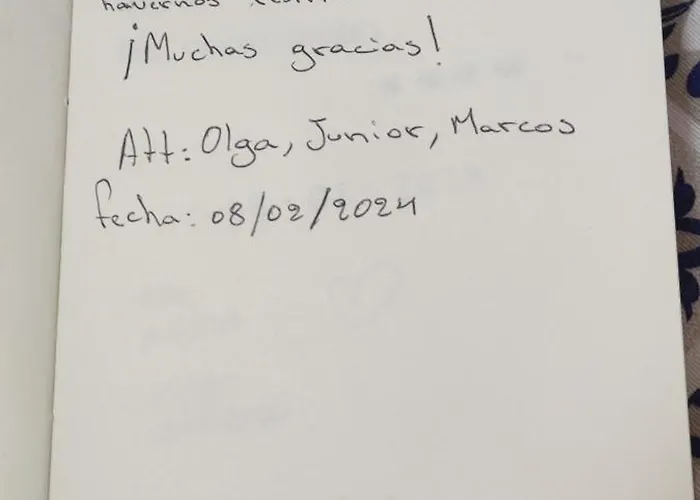 ¡Muchas gracias!
Att: Olga, Junior, Marcos
fecha: 08/02/2024